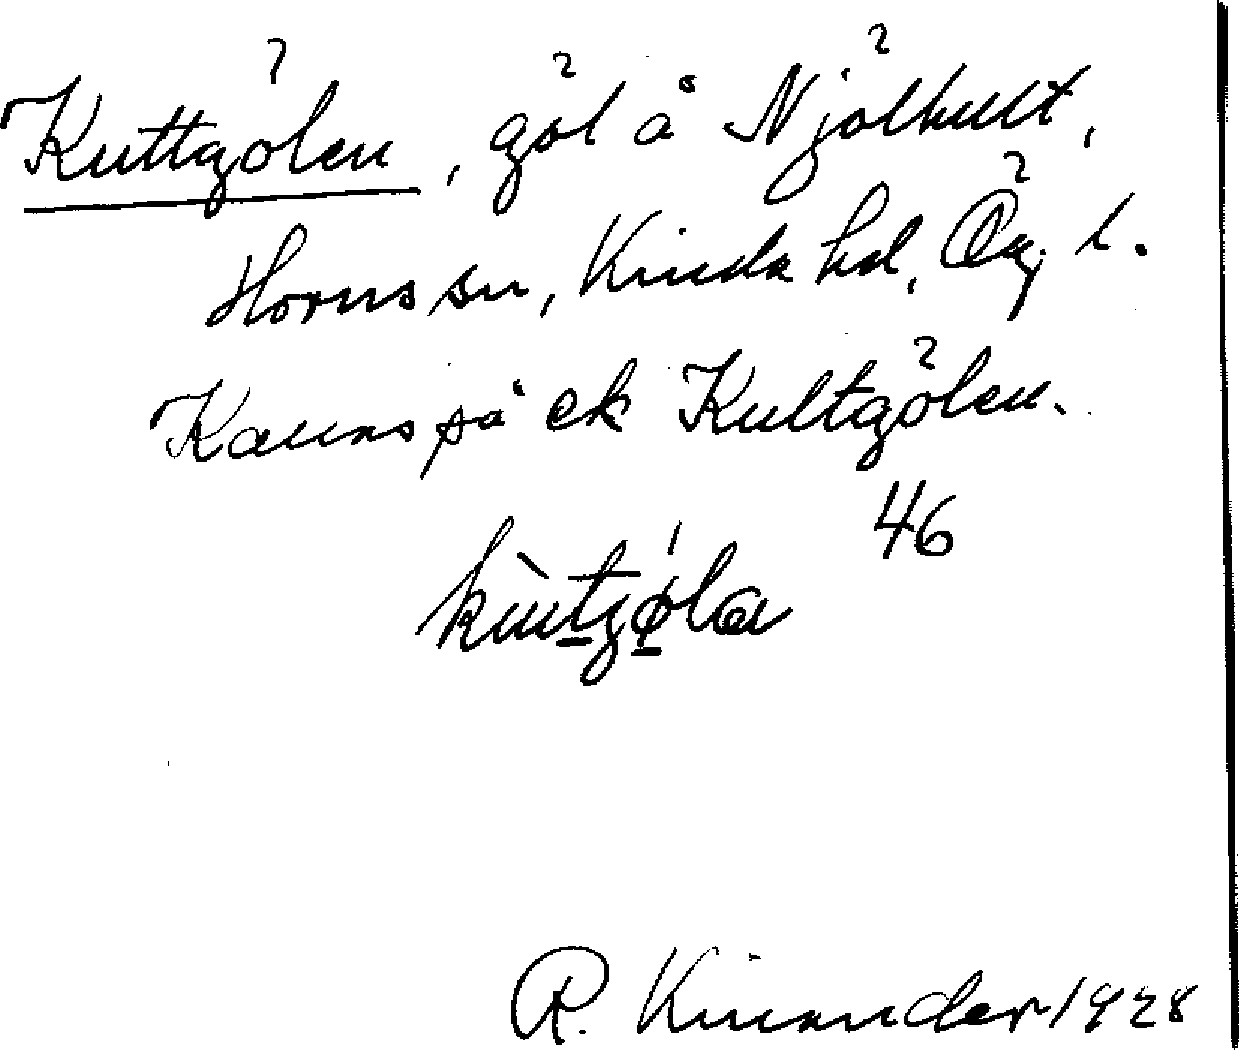 Kuttgölen, göl å Njölhult,
Horns sn, Kinda hd, Ög. l.
Kanns på ek Kultgölen.
46
R. Kinander 1928